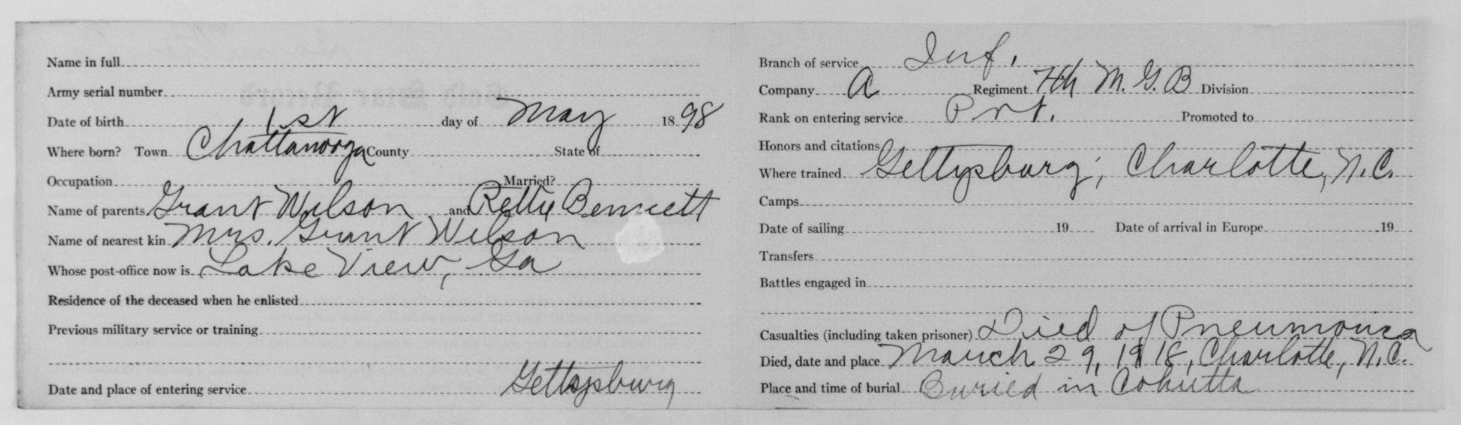 Name in full
Army serial number
Date of birth 1st day of May 1898
Where born? Town Chattanooga County State of
Occupation Married?
Name of parents Grant Wilson and Rettie Bennett
Name of nearest kin Mrs. Grant Wilson
Whose post-office now is Lake View, Ga
Residence of the deceased when he enlisted
Previous military service or training
Date and place of entering service Gettysburg
Branch of service Inf.
Company A Regiment 7th M. G. B Division
Rank on entering service Prt. Promoted to
Honors and citations
Where trained Gettysburg; Charlotte, N.C.
Camps
Date of sailing 19 Date of arrival in Europe 19
Transfers
Battles engaged in
Casualties (including taken prisoner) Died of Pneumonia
Died, date and place March 29, 1918, Charlotte, N.C.
Place and time of burial Buried in Cohutta